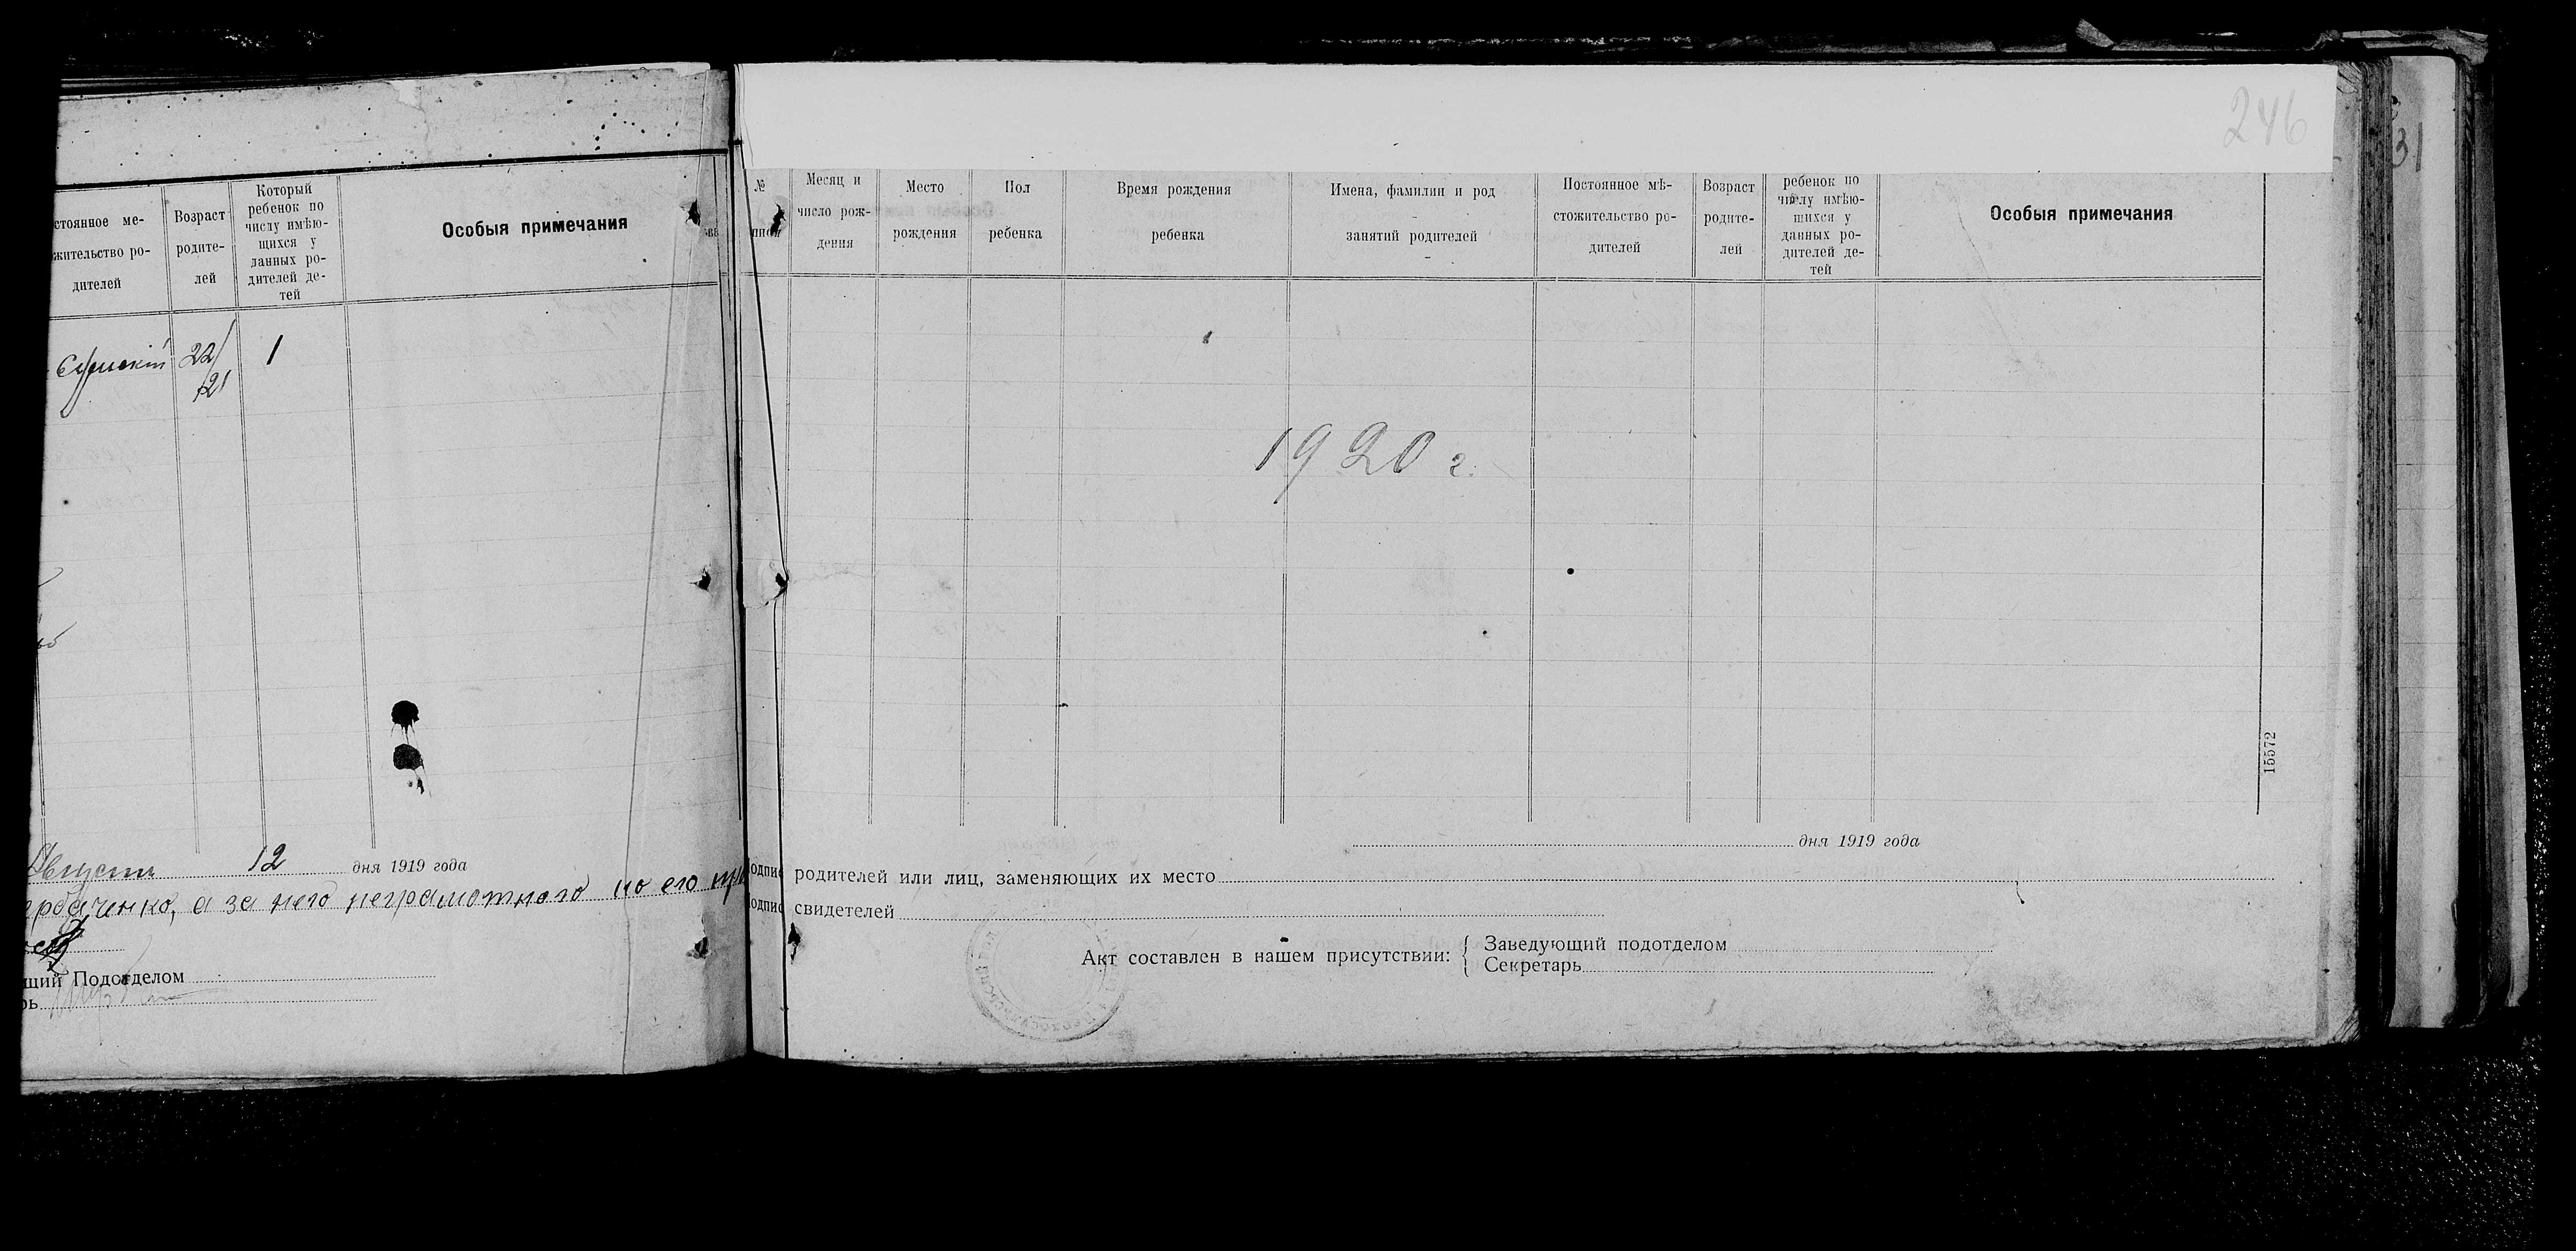 стоянное ме-
жительство ро-
дителей
Возраст
родите-
лей
Который
ребенок по
числу имѣю-
щихся у
данных ро-
дителей де-
тей
Особыя примечания
22/
21
1
Август 12 дня 1919 года
ербаченко, а за него неграмотного по его
щий Подотделом
рь
246
31
№
Месяц и
число рож-
дения
Место
рождения
Пол
ребенка
Время рождения
ребенка
Имена, фамилии и род
занятий родителей
Постоянное мѣ-
стожительство ро-
дителей
Возраст
родите-
лей
ребенок по
числу имѣю-
щихся у
данных ро-
дителей де-
тей
Особыя примечания
1920 г.
15572
дня 1919 года
одпис родителей или лиц, заменяющих их место
одпис свидетелей
Акт составлен в нашем присутствии: { Заведующий подотделом
Секретарь